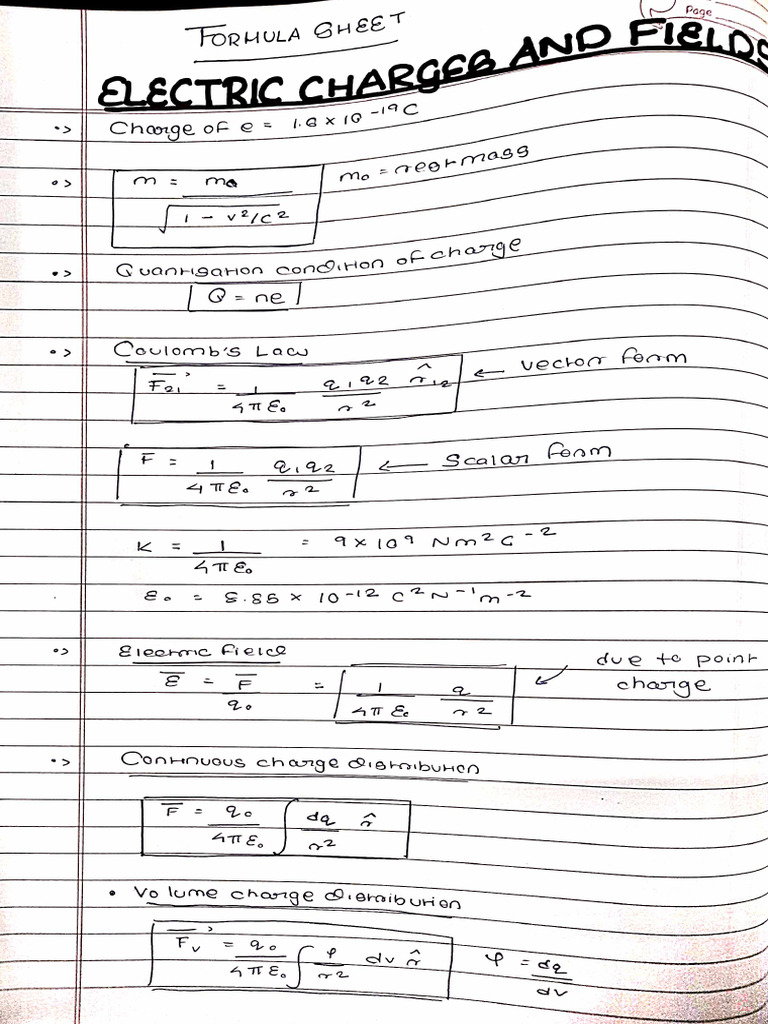 Page
FORMULA SHEET
ELECTRIC CHARGES AND FIELDS
•> Charge of e = 1.6 × 10⁻¹⁹C
•> m = m₀ / √(1 - v²/c²) m₀ = rest mass
•> Quantisation condition of charge
Q = ne
•> Coulomb's Law
F⃗₂₁ = 1/4πε₀ q₁q₂/r² r̂₁₂ ← vector form
F̅ = 1/4πε₀ q₁q₂/r² ← Scalar form
K = 1/4πε₀ = 9 × 10⁹ Nm²C⁻²
ε₀ = 8.85 × 10⁻¹² C²N⁻¹m⁻²
•> Electric field
E̅ = F̅/q₀ = 1/4πε₀ q/r² ← due to point charge
•> Continuous charge distribution
F̅ = q₀/4πε₀ ∫ dq/r² r̂
• Volume charge distribution
F⃗ᵥ = q₀/4πε₀ ∫ φ/r² dv r̂ φ = dq/dv